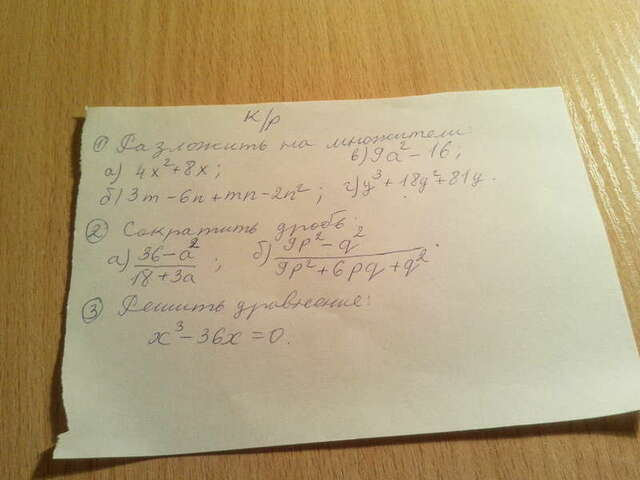 К/р
① Разложить на множители:
а) 4x²+8x; в) 9a²-16;
б) 3m-6n+mn-2n²; г) y³+18y²+81y.
② Сократить дробь:
а) (36-a²)/(18+3a); б) (9p²-q²)/(9p²+6pq+q²).
③ Решить уравнение:
x³-36x=0.